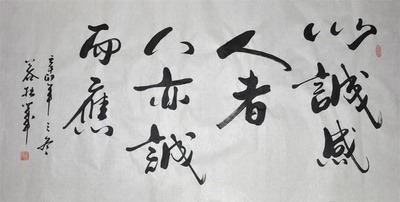 以誠感
人者
人亦誠
而應
辛卯年之冬